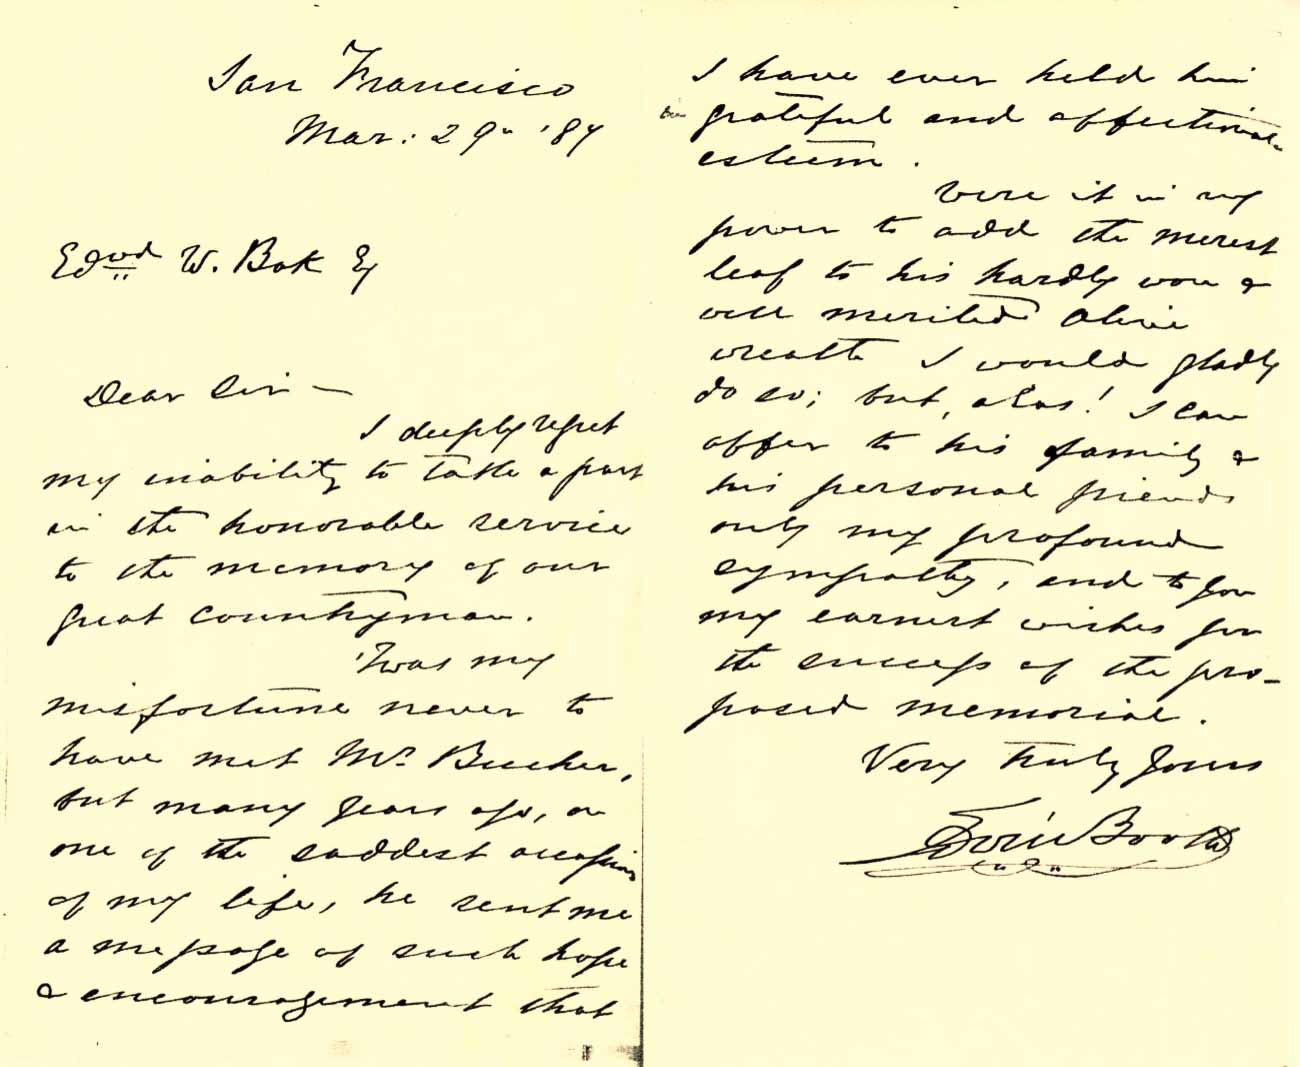 San Francisco
Mar: 29th '87
Edwd W. Bok Esq
Dear Sir —
I deeply regret
my inability to take a part
in the honorable service
to the memory of our
great countryman.
'Twas my
misfortune never to
have met Mr. Beecher,
but many years ago, on
one of the saddest occasions
of my life, he sent me
a message of such hope
& encouragement that
I have ever held him
in grateful and affectionate
esteem.
Were it in my
power to add the merest
leaf to his hardly won &
well merited Olive
wreath I would gladly
do so; but, alas! I can
offer to his family &
his personal friends
only my profound
sympathy, and to you
my earnest wishes for
the success of the pro-
posed memorial.
Very truly yours
Edwin Booth